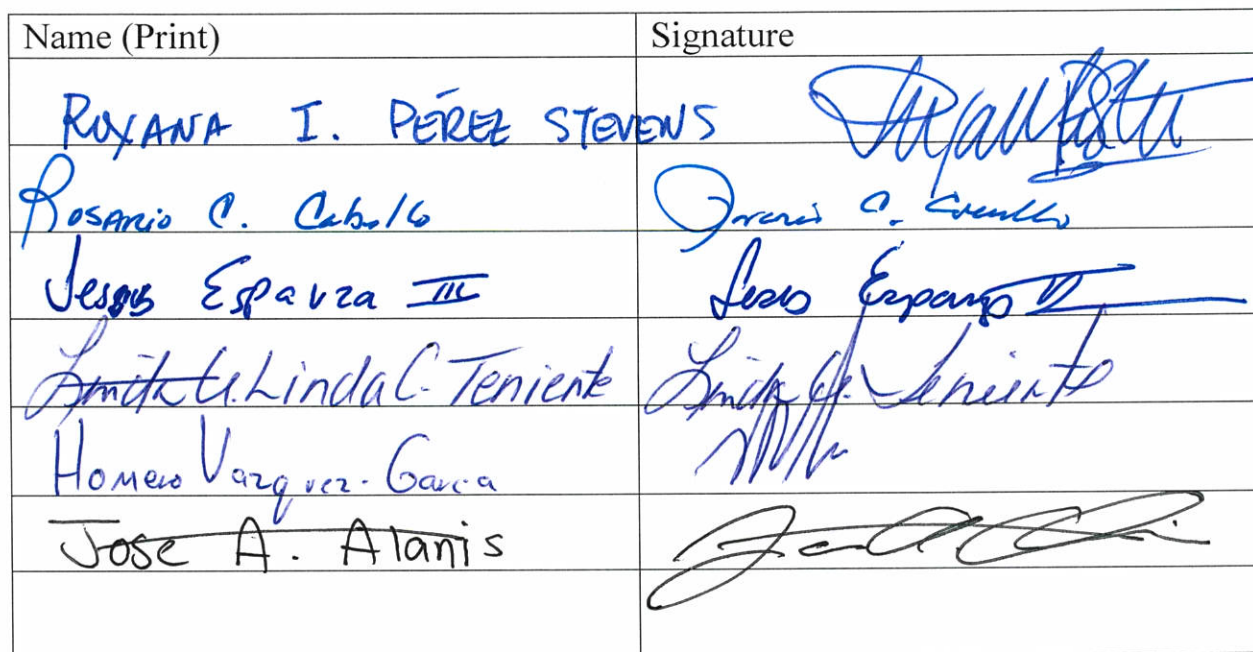 Name (Print) Signature
ROXANA I. PÉREZ STEVENS
Rosario C.
Jesus Esparza III Jesus Esparza III
Linda C. Linda C. Teniente Linda C. Teniente
Homero Vazquez-Garcia
Jose A. Alanis